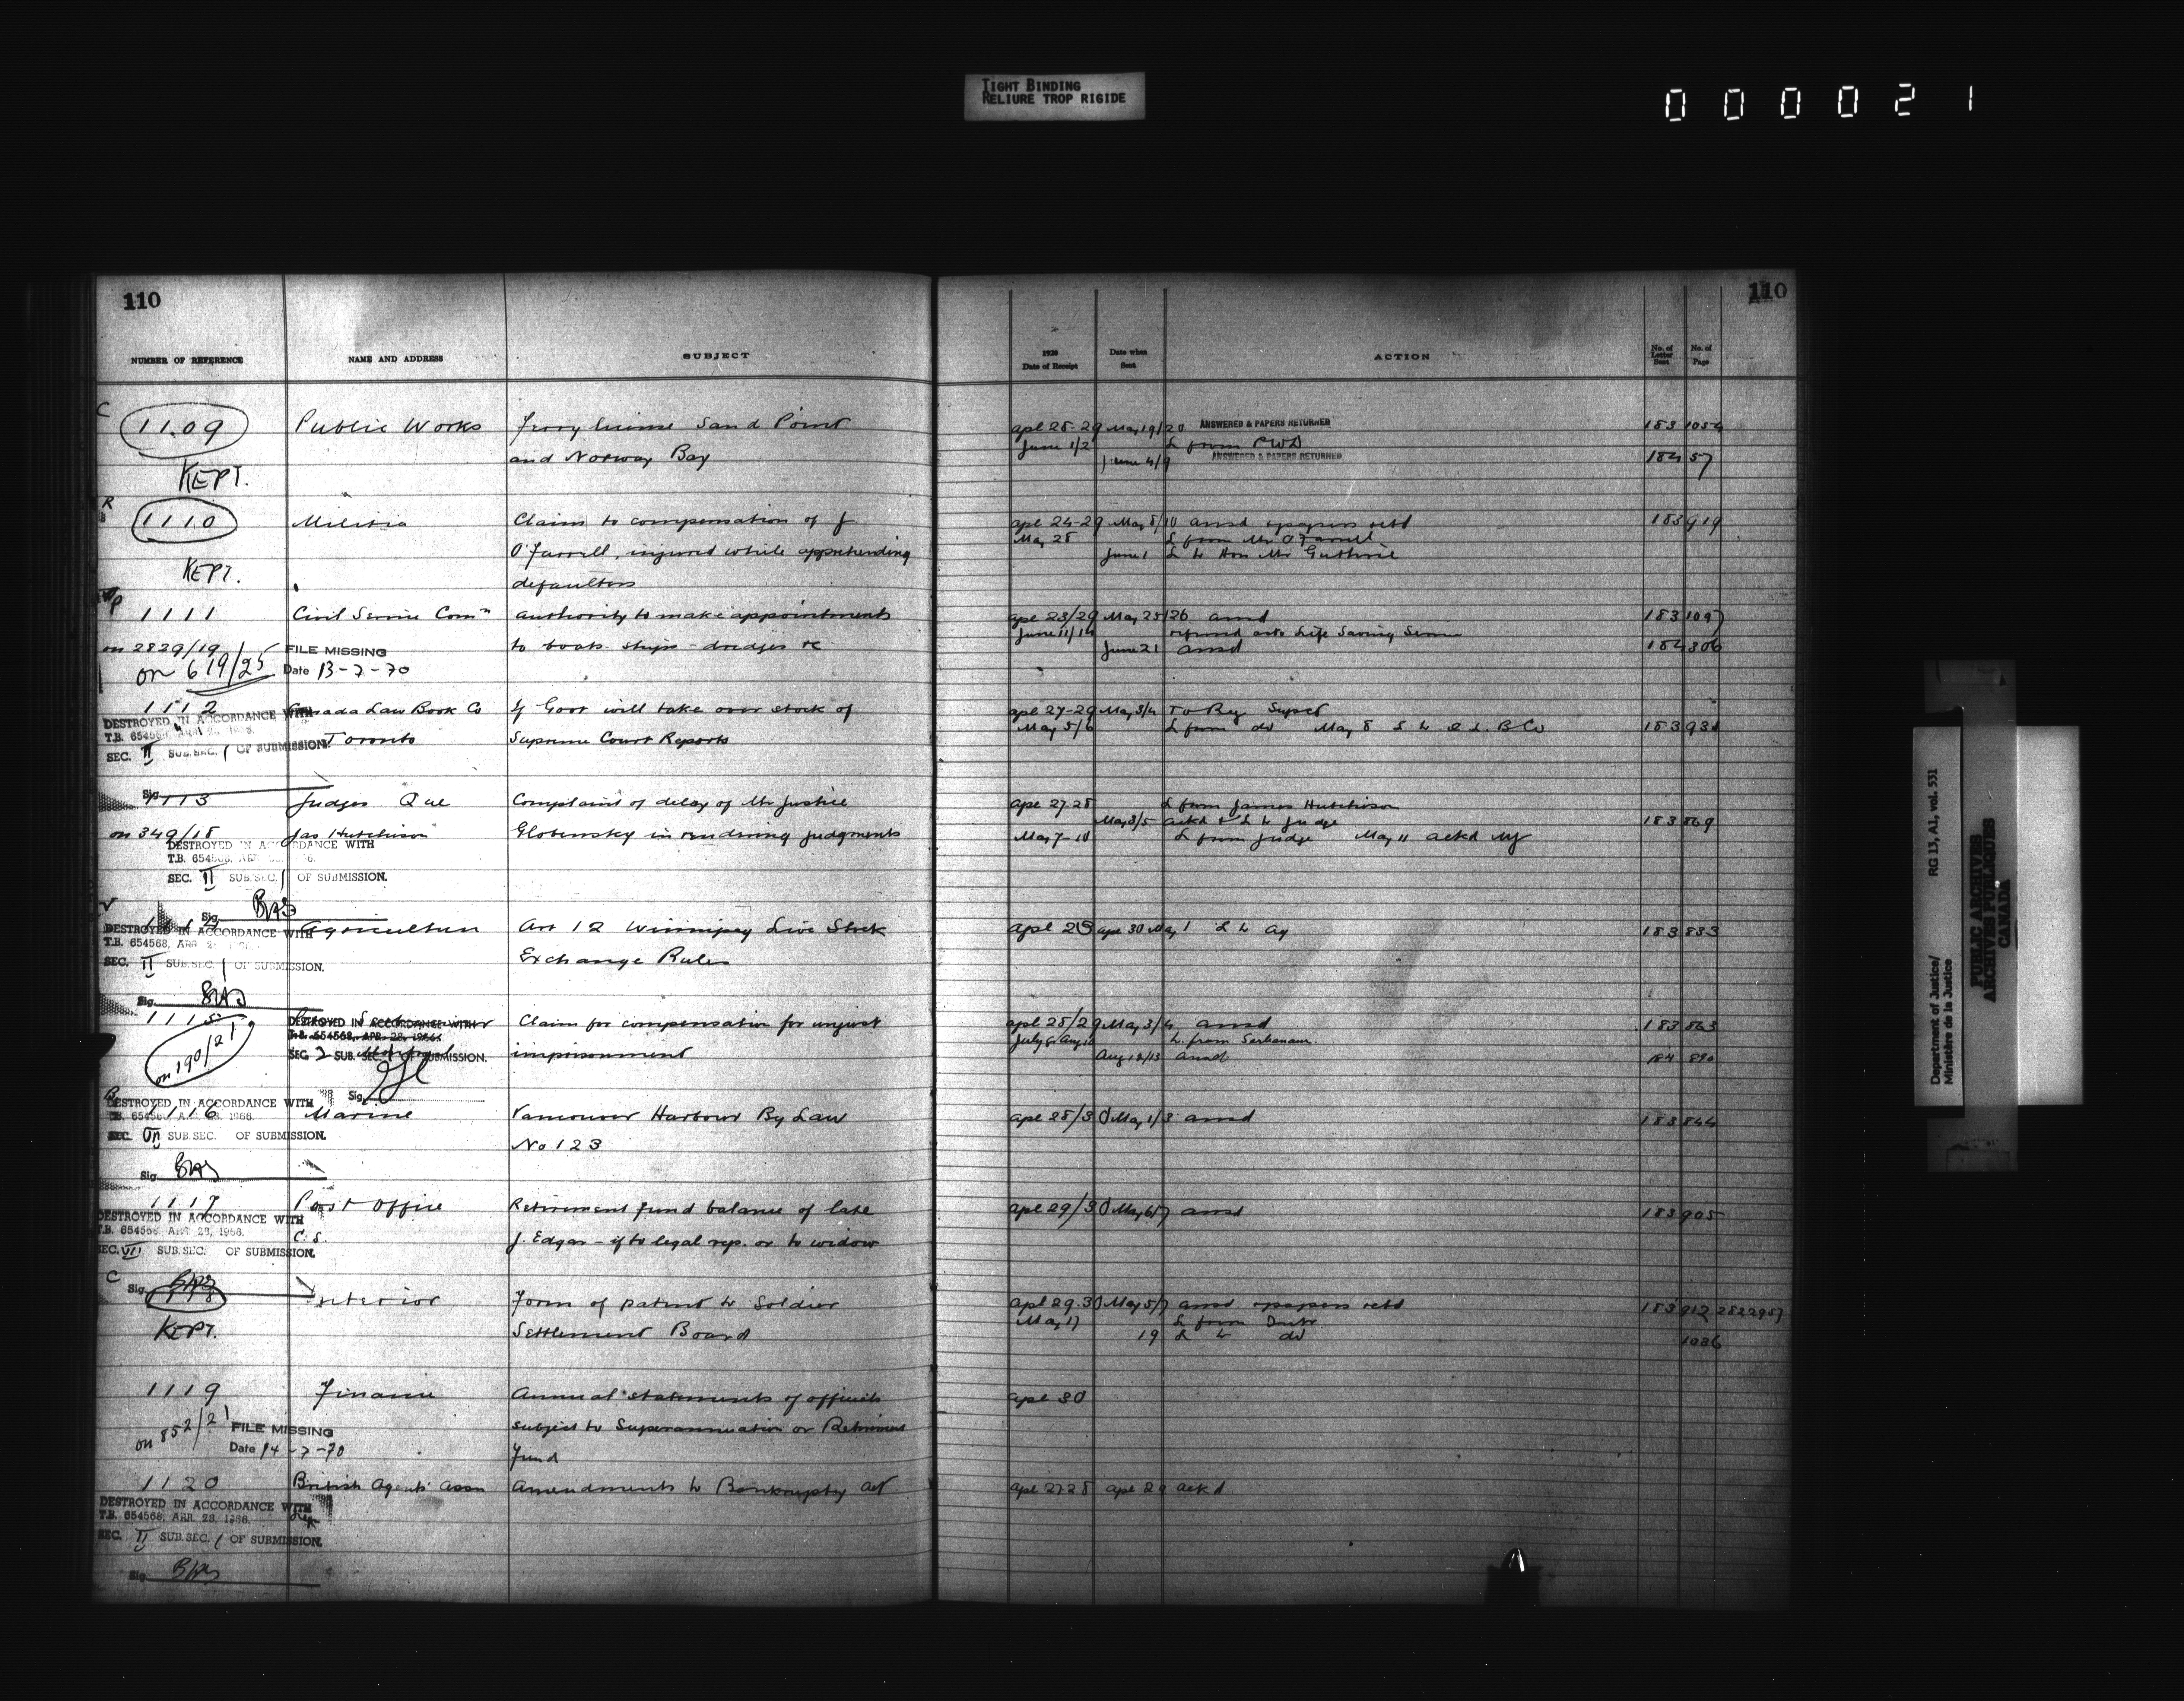 TIGHT BINDING
RELIURE TROP RIGIDE
000021
110
NUMBER OF REFERENCE NAME AND ADDRESS SUBJECT
C
1109 Public Works Ferry license Sand Point
and Norway Bay
KEPT.
R
1110 Militia Claim to compensation of J
O'Farrell, injured while apprehending
KEPT. defaulters
P
1111 Civil Service Comn authority to make appointments
on 2829/19 FILE MISSING to boats ships - dredges &c
on 619/25 Date 13-7-70
1112 Canada Law Book Co If Govt will take over stock of
DESTROYED IN ACCORDANCE WITH
T.B. 654568, APR. 28, 1966. Toronto Supreme Court Reports
SEC. II SUB.SEC. 1 OF SUBMISSION.
Sig.
1113 Judges Que Complaint of delay of Mr Justice
on 349/18 Jas Hutchison Globensky in rendering judgments
DESTROYED IN ACCORDANCE WITH
T.B. 654568, APR.
SEC. II SUB.SEC. 1 OF SUBMISSION.
Sig.
V
Agriculture Art 12 Winnipeg Live Stock
DESTROYED IN ACCORDANCE WITH
T.B. 654568, APR 2
SEC. II SUB.SEC. 1 OF SUBMISSION. Exchange Rules
Sig.
1115 Claim for compensation for unjust
DESTROYED IN ACCORDANCE WITH
T.B. 654568, APR. 28, 1966.
on 190/21 SEC. 2 SUB.SEC. 1 OF SUBMISSION. imprisonment
Sig.
1116 Marine Vancouver Harbour By Law
DESTROYED IN ACCORDANCE WITH
T.B. 654568, APR. 28, 1966.
SEC. SUB.SEC. OF SUBMISSION. No 123
Sig.
1117 Post Office Retirement fund balance of late
DESTROYED IN ACCORDANCE WITH
T.B. 654568, APR 28, 1966. C.S. J. Edgar - if to legal rep. or to widow
SEC. VII SUB.SEC. OF SUBMISSION.
C
Sig.
1118 Interior Form of patent to Soldier
KEPT. Settlement Board
1119 Finance Annual statements of officials
on 852/21 FILE MISSING subject to Superannuation or Retirement
Date 14-7-70 Fund
1120 British Agents' Assn Amendments to Bankruptcy Act
DESTROYED IN ACCORDANCE WITH
T.B. 654568, APR. 28, 1966.
SEC. II SUB.SEC. 1 OF SUBMISSION.
Sig.
110
1920
Date of Receipt Date when Sent ACTION No. of Letter Sent No. of Page
apl 28-29 May 19/20 ANSWERED & PAPERS RETURNED 183 1054
June 1/2 L from PWD
June 4/9 ANSWERED & PAPERS RETURNED 184 57
apl 24-29 May 8/10 ansd & papers retd 183 919
May 28 L from Mr O'Farrell
June 1 L to Hon Mr Guthrie
apl 23/29 May 25/26 ansd 183 1097
June 11/14 refered acts Life Saving Service
June 21 ansd 184 306
apl 27-29 May 3/4 To
May 5/6 L from do May 8 L to C L B Co 183 931
apl 27-28 L from James Hutchison
May 3/5 ackd & L to Judge 183 869
May 7-10 L from Judge May 11 ackd
apl 28 apl 30 May 1 L to Ag 183 833
apl 28/29 May 3/4 ansd 183 863
Aug 12/13 ansd 184 890
apl 28/30 May 1/3 ansd 183 844
apl 29/30 May 6/7 ansd 183 905
apl 29.30 May 5/7 ansd & papers retd 183 912 2822957
May 17 L from Intr
19 L to do 1036
apl 30
apl 27-28 apl 29 ackd
Department of Justice/
Ministère de la Justice
RG 13, A1, vol. 531
PUBLIC ARCHIVES
ARCHIVES PUBLIQUES
CANADA